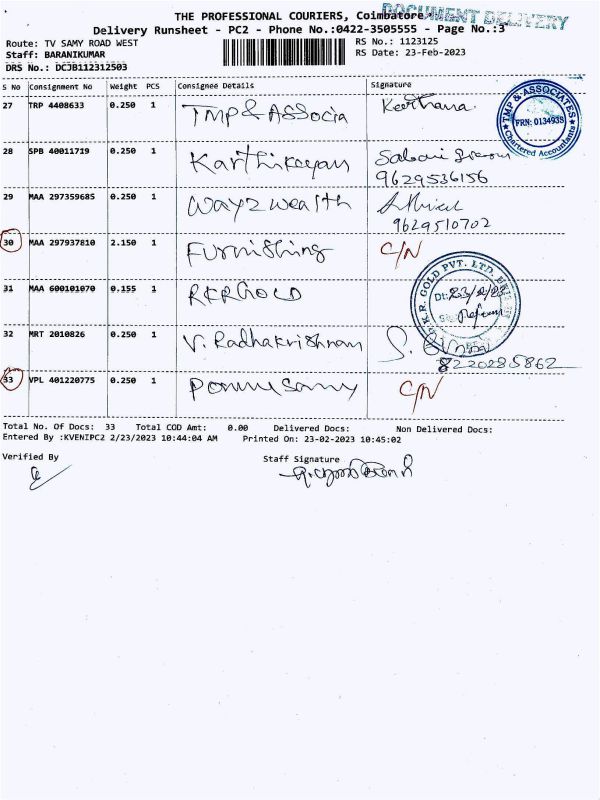 THE PROFESSIONAL COURIERS, Coimbatore
DOCUMENT DELIVERY
Delivery Runsheet - PC2 - Phone No.:0422-3505555 - Page No.:3
Route: TV SAMY ROAD WEST
RS No.: 1123125
Staff: BARANIKUMAR
RS Date: 23-Feb-2023
DRS No.: DCJB112312503
S No Consignment No Weight PCS Consignee Details Signature
27 TRP 4408633 0.250 1 TMP & ASSOCIA Keerthana
TMP & ASSOCIATES
FRN: 013493S
Chartered Accountants
28 SPB 40011719 0.250 1 Karthikeyan
9629536156
29 MAA 297359685 0.250 1 Way2wealth
9629510702
30 MAA 297937810 2.150 1 Furnishing C/N
31 MAA 600101070 0.155 1 RKRGOLD
R.K.R. GOLD PVT. LTD.
Dt: 23/2/23
32 MRT 2010826 0.250 1 V. Radhakrishnan
8220285862
33 VPL 401220775 0.250 1 Ponnusamy C/N
Total No. Of Docs: 33 Total COD Amt: 0.00 Delivered Docs: Non Delivered Docs:
Entered By :KVENIPC2 2/23/2023 10:44:04 AM Printed On: 23-02-2023 10:45:02
Verified By Staff Signature